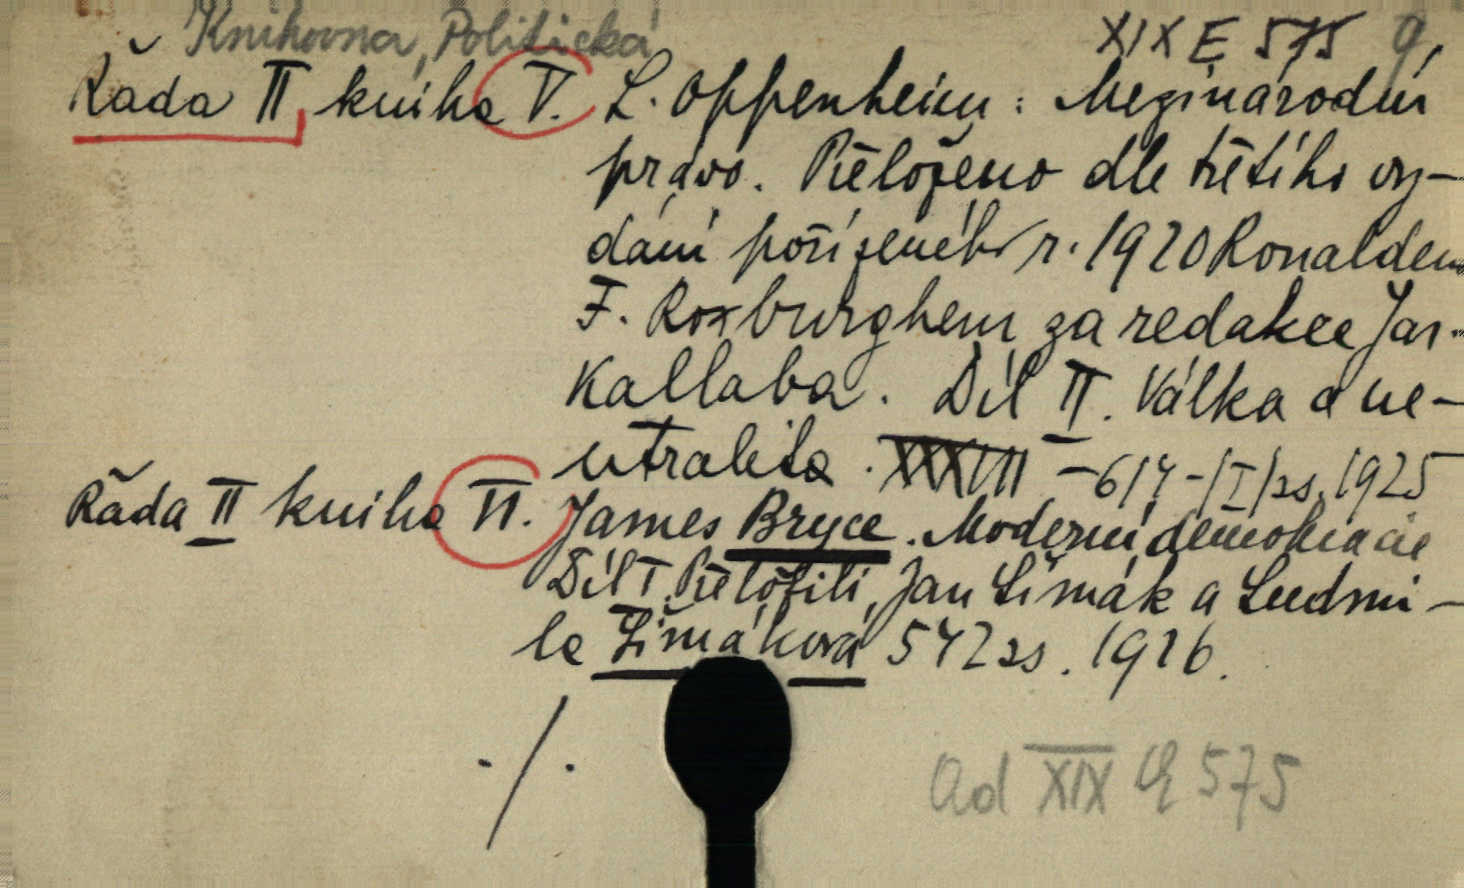 Knihovna Politická
XIX E 575 q
Řada II kniha V. L. Oppenheim: Mezinárodní
právo. Přeloženo dle třetího vy-
dání pořízeného r. 1920 Ronaldem
F. Roxburghem za redakce Jar.
Kallaba. Díl II. Válka a ne-
utralita. XXXVIII - 614 - |I| ss. 1925
Řada II kniha VI. James Bryce. Moderní demokracie
Díl I. Přeložili Jan Šimák a Ludmi-
la Šimáková 542 ss. 1926.
./.
Ad XIX E 575